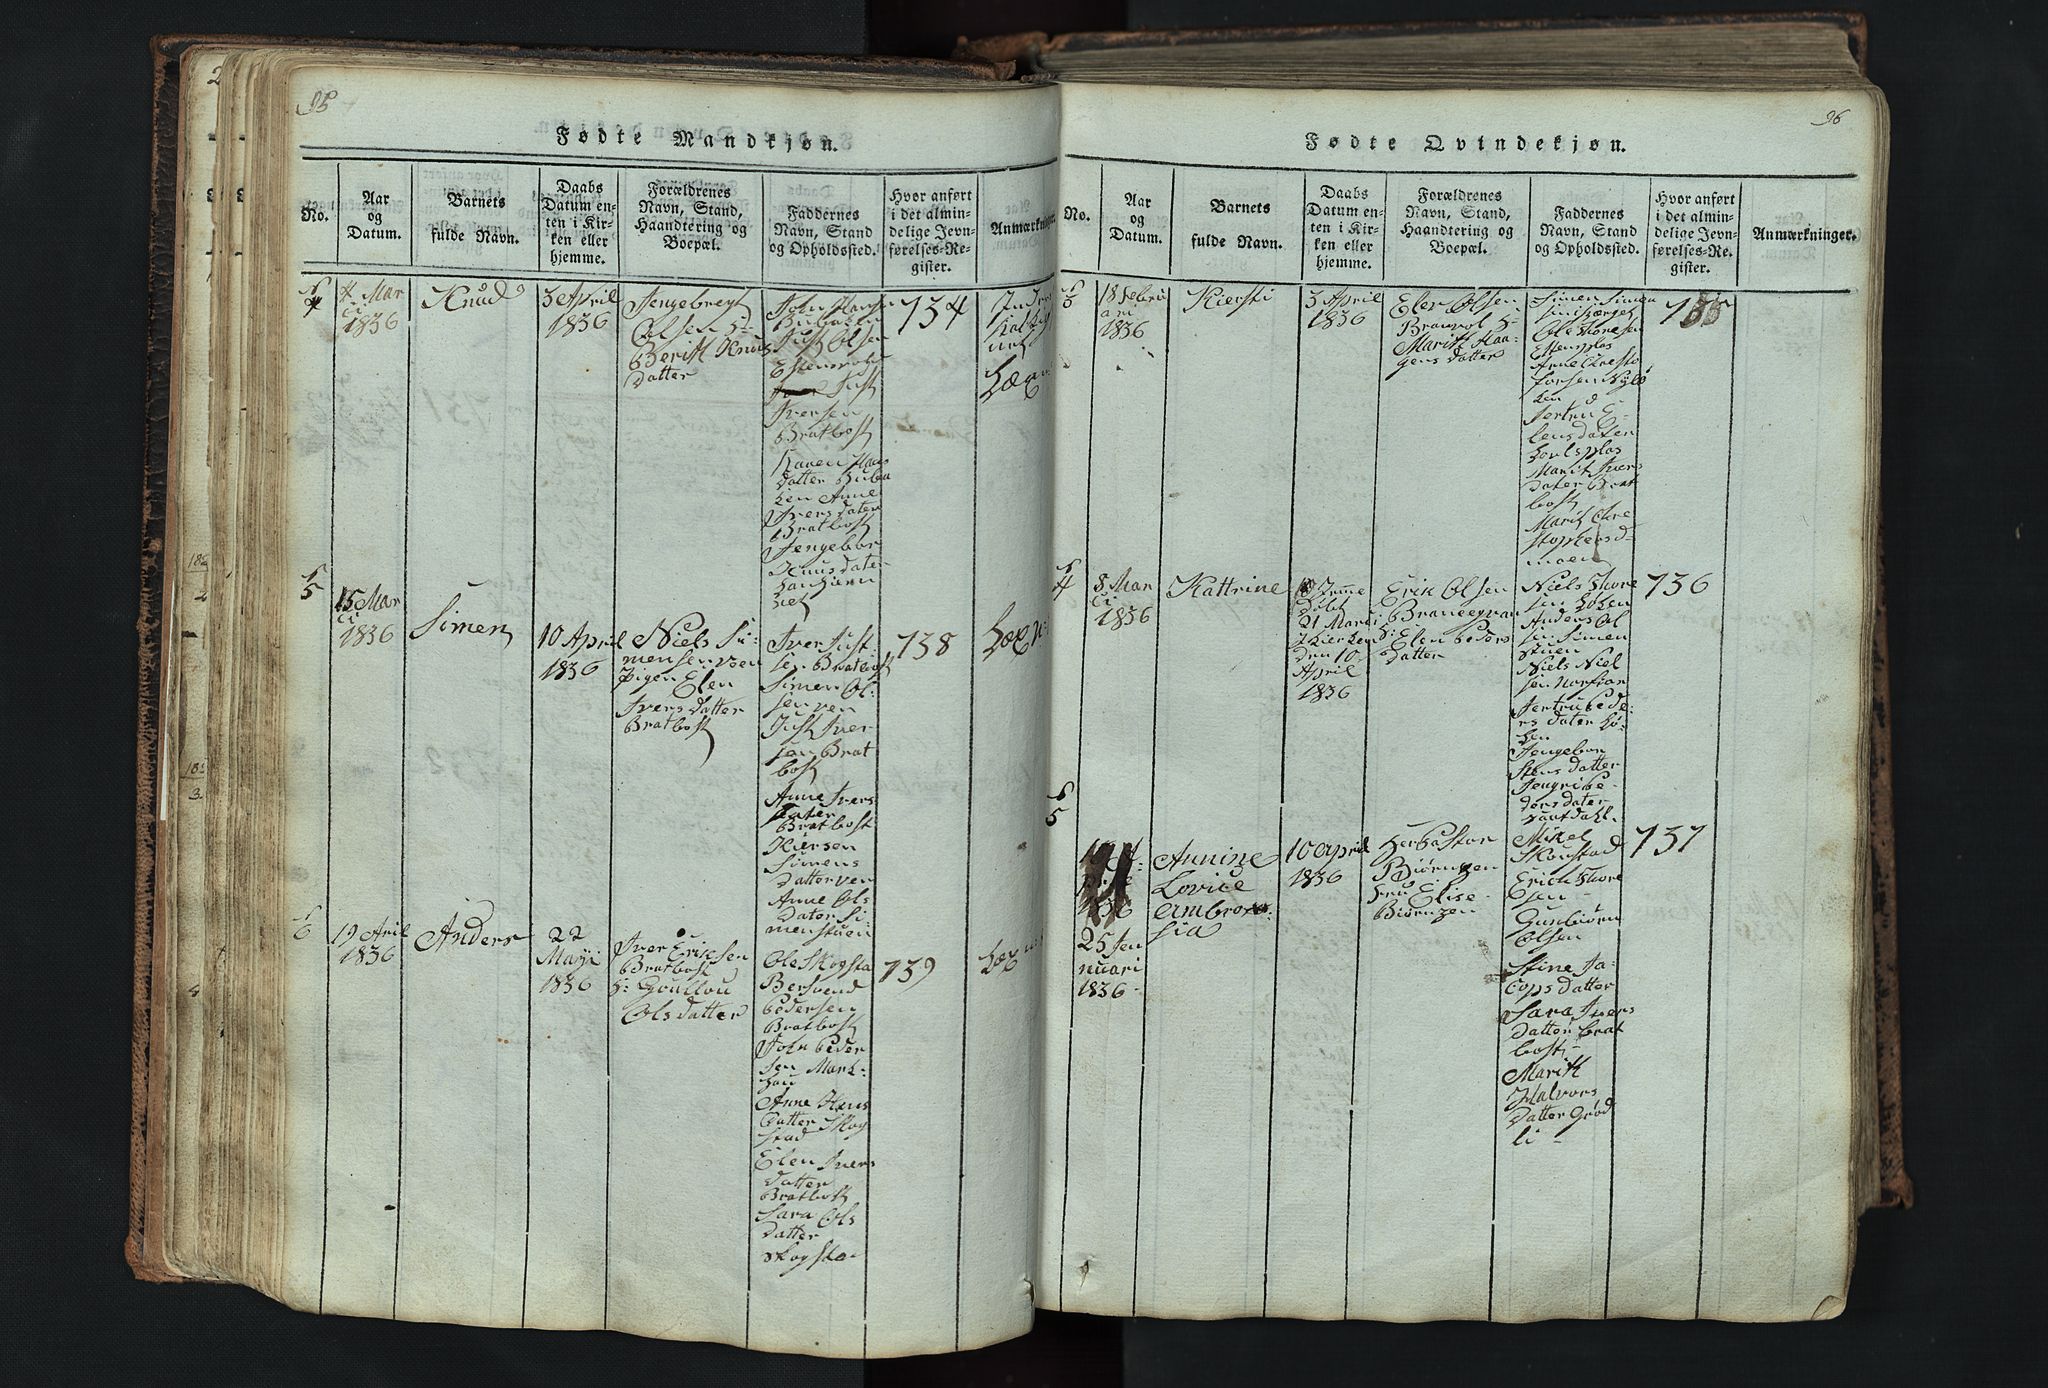 95
Fødte Mandkjøn.
No.
Aar
og
Datum.
Barnets
fulde Navn.
Daabs
Datum en-
ten i Kir-
ken eller
hjemme.
Forældrenes
Navn, Stand,
Haandtering og
Boepæl.
Faddernes
Navn, Stand
og Opholdssted.
Hvor anført
i det almin-
delige Jevn-
førelses-Re-
gister.
Anmærkninger.
4
4 Mar
ci
1836
Knud
3 April
1836
Jngebregt
Olsen H:
Beritt Knus
Datter
John Hansen
Just Olsen
Just
Jversen
Bratbost
Karen Hans
Datter Buba
ken Anne
Jvers dater
Bratbost
Jengebor
Knus dater
734
5
15 Mar
ci
1836
Simen
10 April
1836
Niels Si:
mensen voen
Pigen Elen
Jvers Datter
Bratbost
Jver Just
sen Bratbost
Simen Ol:
sen ven
Just Jver
sen Brat
bost
Anne Jvers
Dater
Bratbost
Kiersen
Simens
Datter ven
Anne Ols
Dater Si:
menstuen
738
6
19 April
1836
Anders
22
Maji
1836
Jver Ericksen
Bratbost
H: Goullou
Ols datter
Ole Skogsta
Bersvend
Pedersen
Bratbost
John Peder
sen Mark:
hau
Anne Hans
Datter Skog
stad
Elen Jvers
Datter
Bratbost
Sara Ols
Datter
Skogsta
739
96
Fødte Qvindekjøn.
No.
Aar
og
Datum.
Barnets
fulde Navn.
Daabs
Datum en-
ten i Kir-
ken eller
hjemme.
Forældrenes
Navn, Stand,
Haandtering og
Boepæl.
Faddernes
Navn, Stand
og Opholdssted.
Hvor anført
i det almin-
delige Jevn-
førelses-Re-
gister.
Anmærkninger.
3
18 Febru
ari
1836
Kiersti
3 April
1836
Eler Olsen
Brauvol H:
Maritt Haa-
gens datter
Simen Simen
Ole Thoresen
Estensplas
Arne Chresto
forsen Nylø
ken
Jertru E-
lens dater
Marit Jvers
dater Brat
bost
Marit Chre
stophersd-
moen
735
4
8 Mar
ci
1836
Kattrine
Døbt
21 Marci
Kierken
den 10
April
1836
Erik Olsen
H: Elen Peders
datter
Niels Thore
sen Løken
Anders Ol
sen Simen
stuen
Niels Niel
sen
Jertru Pede:
rs dater Lø:
ken
Jengebor
Stens datter
Jengri Pe-
ders dater
737
5
25 Jen
nuari
1836
Annine
Lovice
Ambro:
sia
10 April
1836
Biørnsen
Fru Elise
Biørnsen
Mikel
Skoustad
Erich Thore
sen
Gunbiørn
Olsen
Stine Ja-
cops datter
Sara Jvers
Datter Brat
bost
Maritt
Halvors
Datter Grød
li
736